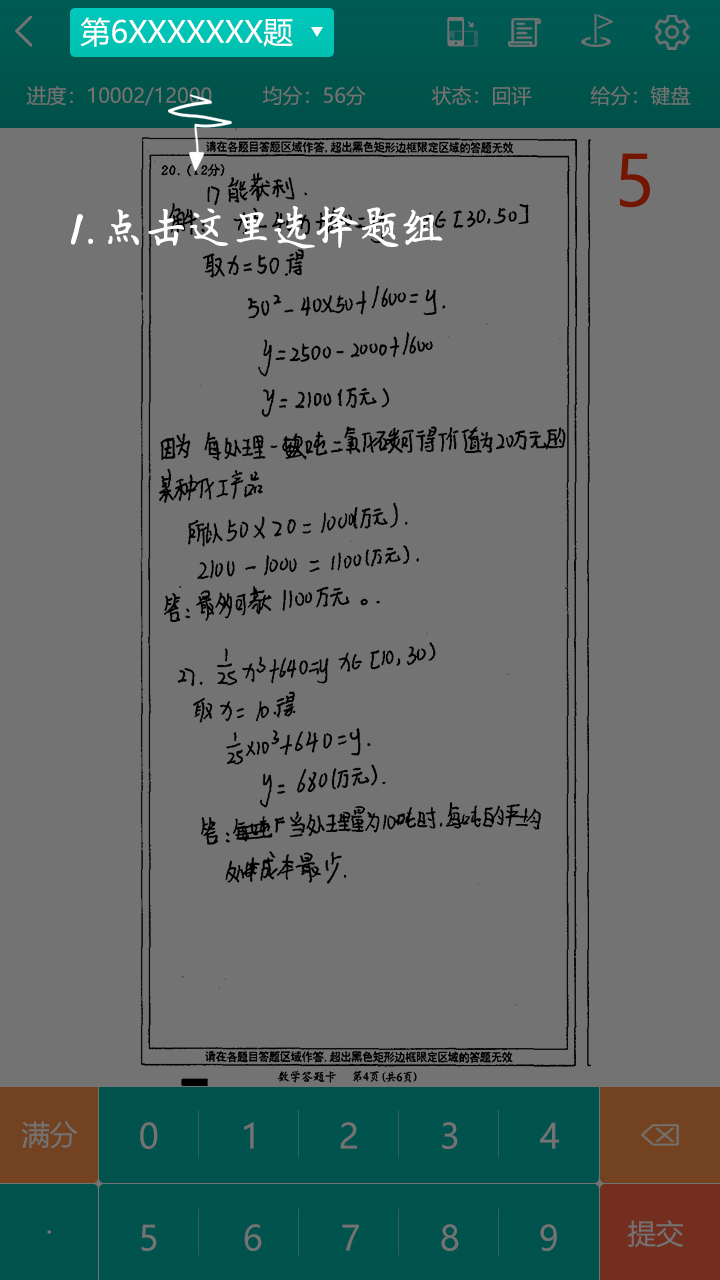 第6XXXXXXX题
进度：10002/12000 均分：56分 状态：回评 给分：键盘
请在各题目答题区域作答,超出黑色矩形边框限定区域的答题无效
5
20.(12分)
能获利.
1.点击这里选择题组
∈[30,50]
取x=50得
50²-40×50+1600=y.
y=2500-2000+1600
y=2100(万元)
因为 每处理一吨二氧化碳可得价值为20万元的
某种化工产品
所以50×20=1000(万元).
2100-1000=1100(万元).
答:最多可获1100万元。
27. 1/25x³+640=y x∈[10,30)
取x=10.得
1/25×10³+640=y.
y=680(万元).
答: 当处理量为10吨时,每吨的平均
成本最少.
请在各题目答题区域作答,超出黑色矩形边框限定区域的答题无效
数学答题卡 第4页(共6页)
满分 0 1 2 3 4
. 5 6 7 8 9 提交